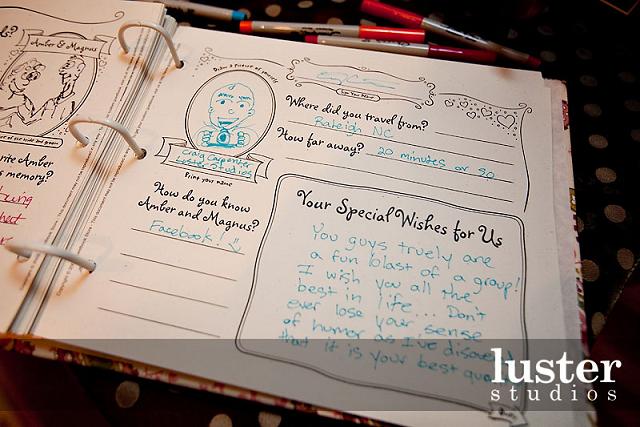 Amber & Magnus
Draw a picture of yourself
Sign Your Name
Where did you travel from?
Raleigh NC
How far away? 20 minutes or so
Craig Carpenter
Luster Studios
Print your name
How do you know
Amber and Magnus?
Facebook!
Your Special Wishes for Us
You guys truely are
a fun blast of a group!
I wish you all the
best in life... Don't
ever lose your sense
of humor as I've discovered
that it is your best
Amber
memory?
luster
studios